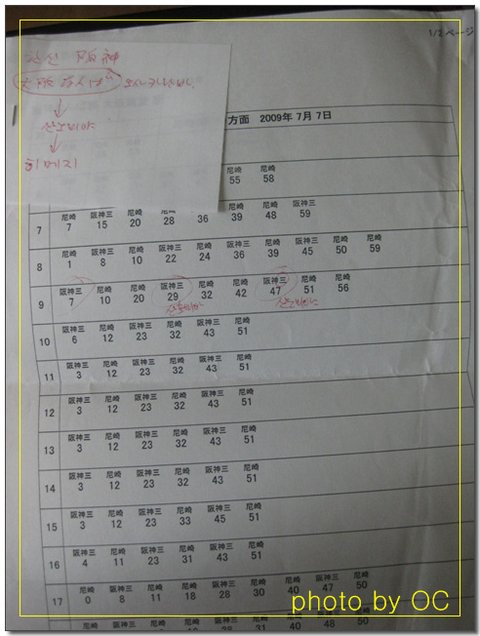 1/2 ページ
한신 阪神
히메지
方面 2009年 7月 7日
尼崎 尼崎
55 58
尼崎 阪神三 尼崎 尼崎 尼崎 尼崎 阪神三
7 7 15 20 28 36 39 48 59
尼崎 阪神三 尼崎 阪神三 尼崎 阪神三 尼崎 阪神三 尼崎 尼崎
8 1 8 10 22 24 36 39 45 50 59
阪神三 尼崎 尼崎 阪神三 尼崎 尼崎 阪神三 尼崎 尼崎
9 7 10 20 29 32 42 47 51 56
阪神三 尼崎 阪神三 尼崎 阪神三 尼崎
10 6 12 23 32 43 51
阪神三 尼崎 阪神三 尼崎 阪神三 尼崎
11 3 12 23 32 43 51
阪神三 尼崎 阪神三 尼崎 阪神三 尼崎
12 3 12 23 32 43 51
阪神三 尼崎 阪神三 尼崎 阪神三 尼崎
13 3 12 23 32 43 51
阪神三 尼崎 阪神三 尼崎 阪神三 尼崎
14 3 12 23 32 43 51
阪神三 尼崎 阪神三 尼崎 阪神三 尼崎
15 3 12 23 33 45 51
阪神三 尼崎 阪神三 尼崎 阪神三 尼崎
16 4 11 23 31 43 51
尼崎 阪神三 尼崎 尼崎 阪神三 尼崎 尼崎 阪神三 尼崎
17 0 8 11 18 28 30 40 47 50
photo by OC